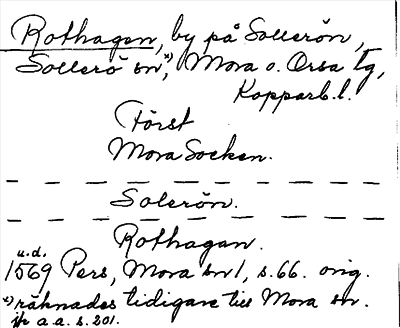 Rothagen, by på Sollerön,
Sollerö sn*), Mora o. Orsa tg,
Kopparb. l.
Först
Mora Socken.
Solerön.
Rothagan.
u.d.
1569 Pers, Mora sn 1, s. 66. orig.
*) räknades tidigare till Mora sn.
jfr a. a. s. 201.